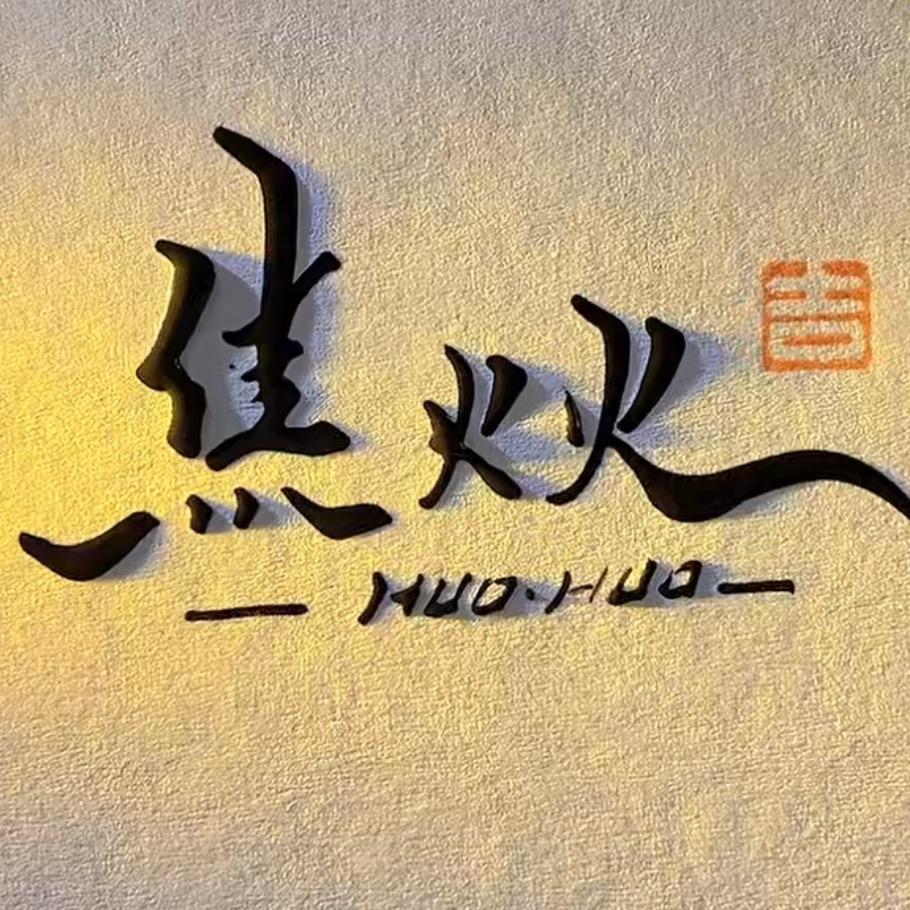 焦炏
— HUO·HUO —